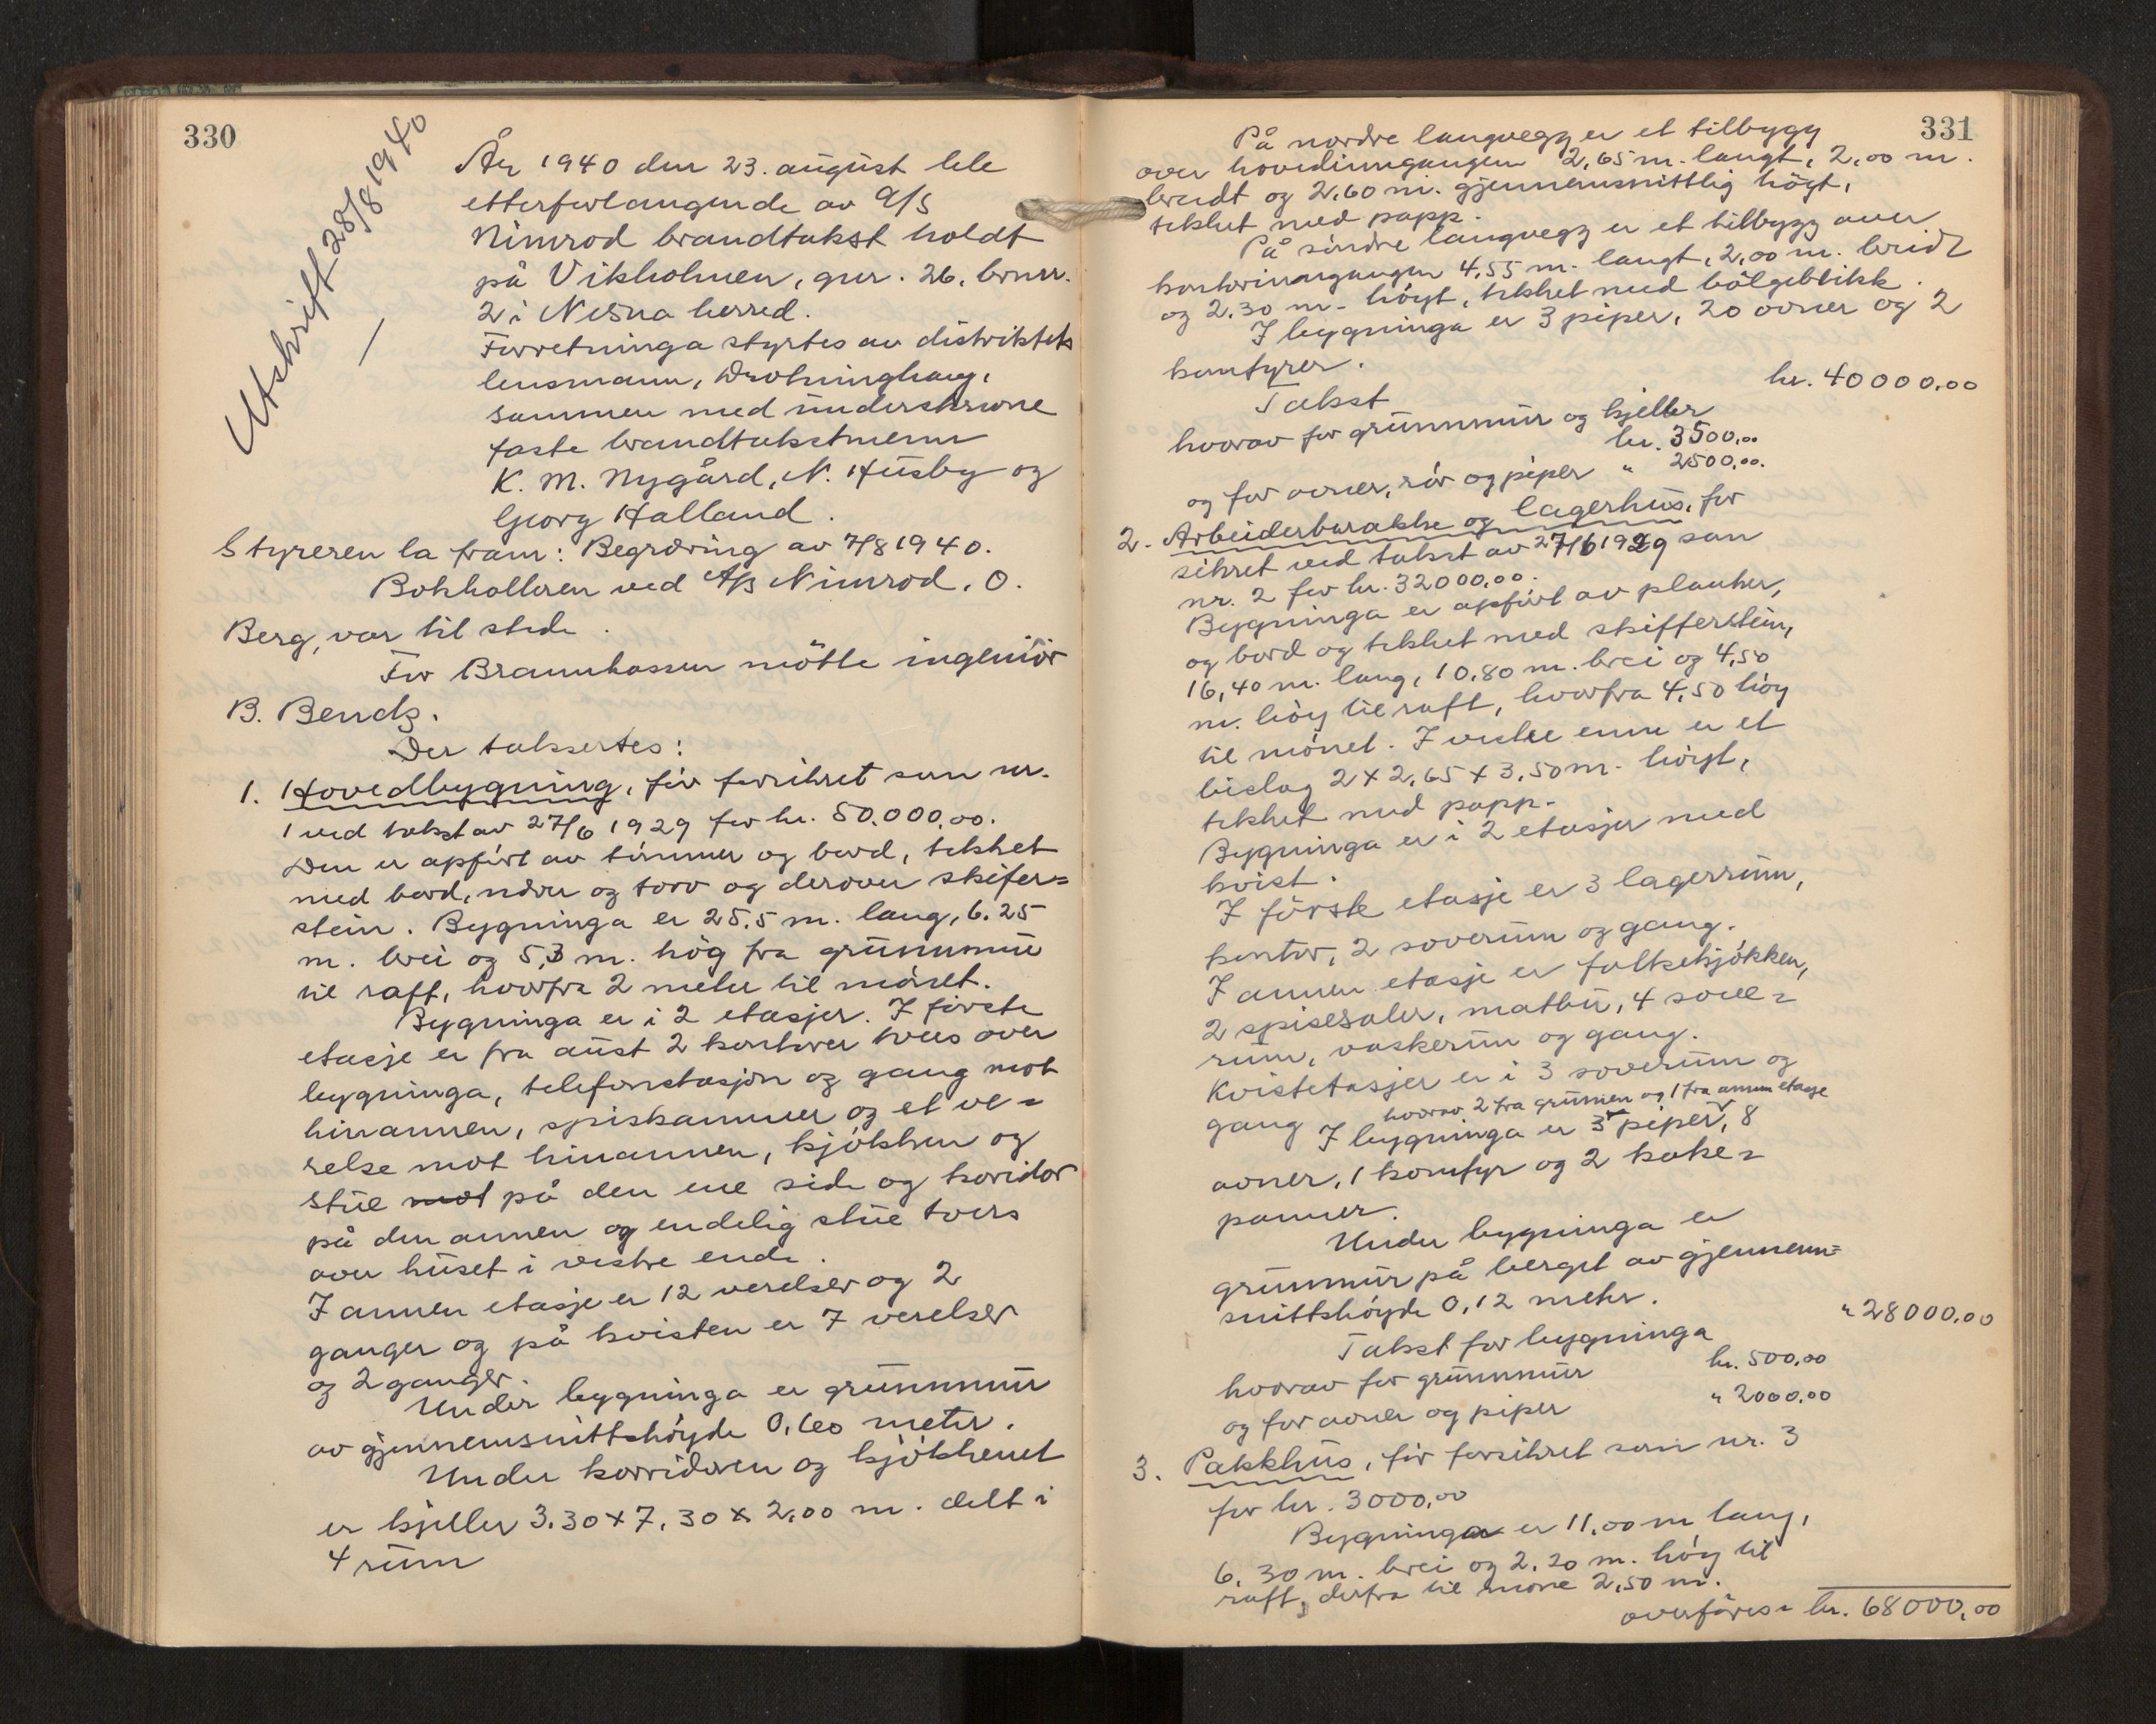 330
Utskrift 28/8 1940
År 1940 den 23. august ble
etterforlangende av A/S
Nimrod brandtakst holdt
på Vikholmen, gnr. 26, brnr.
2 i Nesna herred.
Forretninga styrtes av distriktets
lensmann, Drotninghaug,
sammen med underskrevne
faste brandtakstmenn
K. M. Nygård, N. Husby og
Georg Halland.
Styreren la fram: Begræring av 7/8 1940.
Bokholderen ved A/S Nimrod, O.
Berg, var til stede.
For Brannkassen møtte ingeniør
B. Bendz.
Der takssertes:
1. Hovedbygning, før forsikret som nr.
1 ved takst av 27/6 1929 for kr. 50.000,00.
Den er opført av tømmer og bord, tekket
med bord, never og torv og derover skifer=
stein. Bygninga er 25.5 m. lang, 6.25
m. brei og 5,3 m. høg fra grunnmur
til raft, hvorfra 2 meter til mønet.
Bygninga er i 2 etasjer. I første
etasje er fra aust 2 kontorer tvers over
bygninga, telefonstasjon og gang mot
hinannen, spiskammer og et ve=
relse mot hinannen, kjøkken og
stue mot på den ene side og koridor
på den annen og endelig stue tvers
over huset i vestre ende.
I annen etasje er 12 verelser og 2
ganger og på kvisten er 7 verelser
og 2 ganger.
Under bygninga er grunnmur
av gjennemsnittshøyde 0,60 meter.
Under korridoren og kjøkkenet
er kjeller 3.30 x 7.30 x 2,00 m. delt i
4 rum
331
På nordre langvegg er et tilbygg
over hovedinngangen 2,65 m. langt, 2,00 m.
breidt og 2,60 m. gjennemsnittlig høgt,
tekket med papp.
På søndre langvegg er et tilbygg over
kontorinngangen 4,55 m. langt, 2,00 m. breidt
og 2,30 m. høgt, tekket med bølgeblikk.
I bygninga er 3 piper, 20 ovner og 2
komfyrer.
Takst kr. 40000,00
hvorav for grunnmur og kjeller
kr. 3500,00
og for ovner, rør og piper " 2500,00.
2. Arbeiderbarakke og lagerhus, for
sikret ved takst av 27/6 1929 som
nr. 2 for kr. 32000,00.
Bygninga er opført av planker,
og bord og tekket med skifferstein,
16,40 m. lang, 10,80 m. brei og 4,50
m. høg til raft, hvorfra 4,50 høg
til mønet. I vestre enne er et
bislag 2 x 2,65 x 3,50 m. høgt,
tekket med papp.
Bygninga er i 2 etasjer med
kvist.
I første etasje er 3 lagerrum,
kontor, 2 soverum og gang.
I annen etasje er folkekjøkken,
2 spisesaler, matbu, 4 sove=
rum, vaskerum og gang.
Kvistetasjer er i 3 soverum og
gang
hvorav 2 fra grunnen og 1 fra annen etasje
I bygninga er 3 piper, 8
ovner, 1 komfyr og 2 koke=
panner.
Under bygninga er
grunnmur på berget av gjennem=
snittshøyde 0,12 meter.
Takst for bygninga " 28000,00
hvorav for grunnmur kr. 500,00
og for ovner og piper " 2000,00
3. Pakkhus, før forsikret som nr. 3
for kr. 3000,00
Bygninga er 11,00 m lang,
6,30 m. brei og 2.20 m. høg til
raft, derfra til møne 2,50 m.
overføres kr. 68000,00